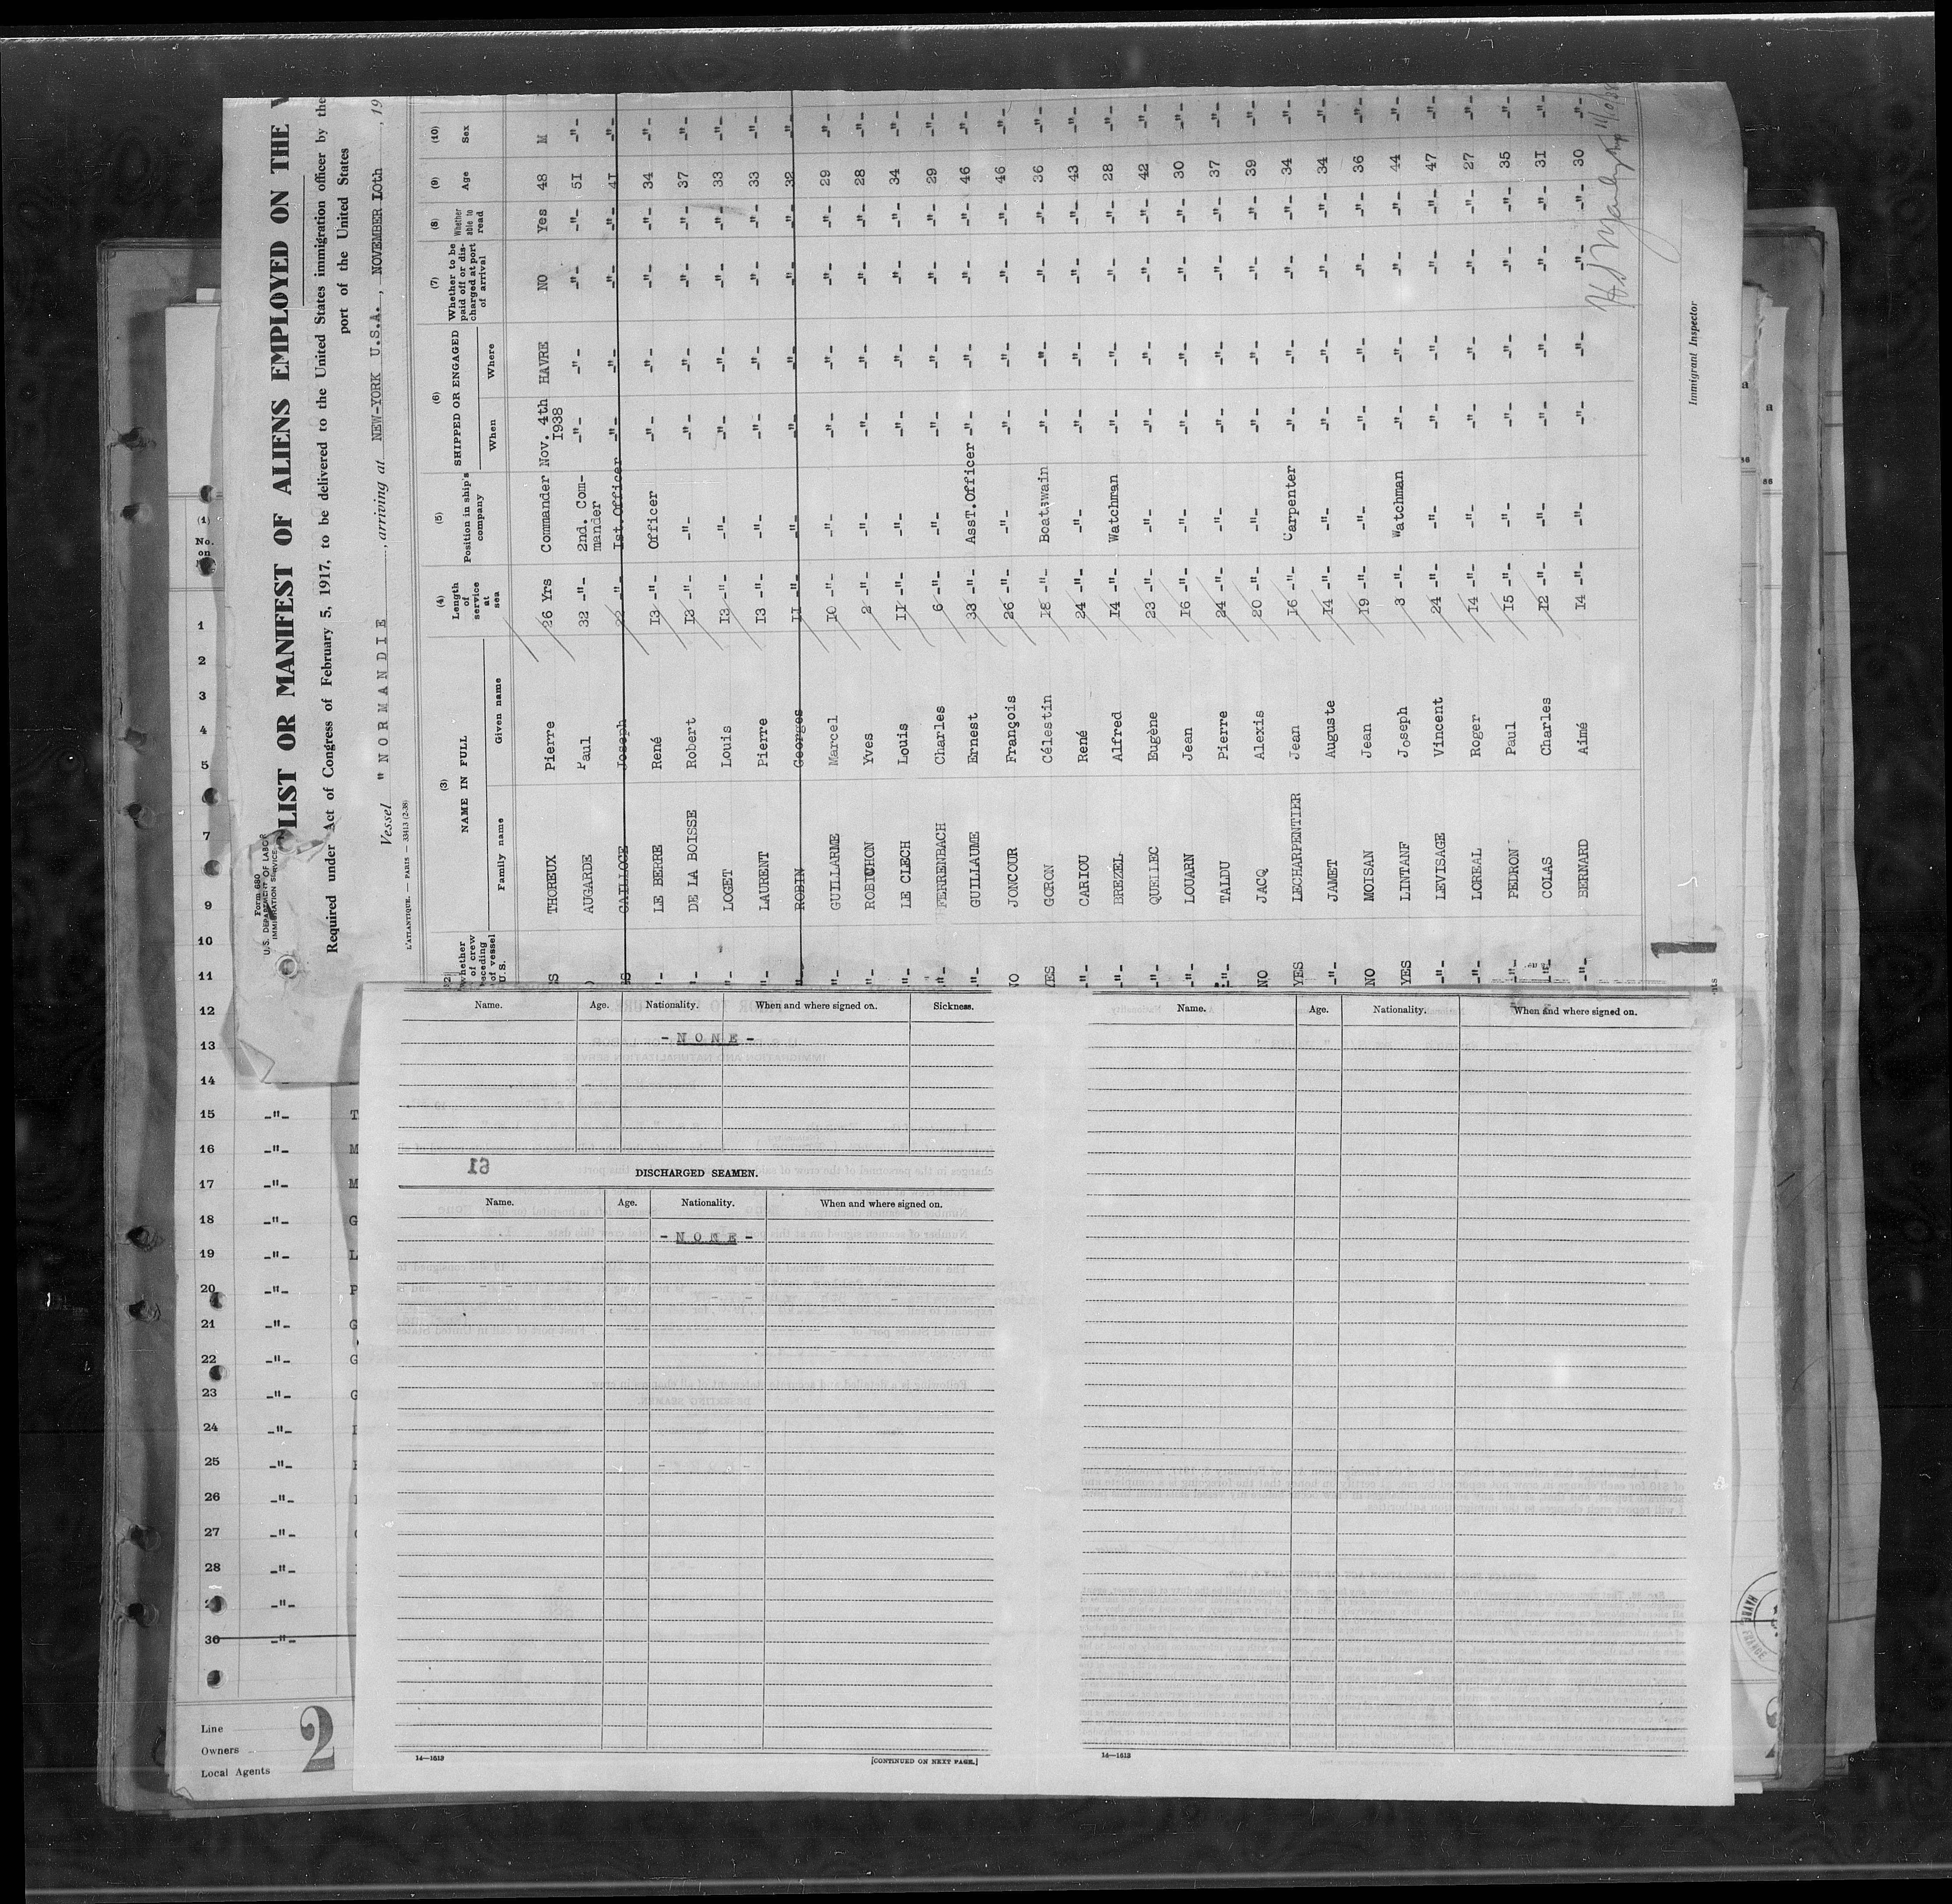 Form 680
U.S. DEPARTMENT OF LABOR
IMMIGRATION SERVICE
LIST OR MANIFEST OF ALIENS EMPLOYED ON THE
Required under Act of Congress of February 5, 1917, to be delivered to the United States immigration officer by the
port of the United States
Vessel " N O R M A N D I E , arriving at NEW-YORK U.S.A. , NOVEMBER LOth , 19
L'ATLANTIQUE. — PARIS — 33413 (2-38)
(3) (4) (5) (6) (7) (8) (9) (10)
whether of crew of vessel U.S. NAME IN FULL Family name Given name Length of service at sea Position in ship's company SHIPPED OR ENGAGED When Where Whether to be paid off or discharged at port of arrival Whether able to read Age Sex
THOREUX Pierre 26 Yrs Commander Nov. 4th I938 HAVRE NO Yes 48 M
AUGARDE Paul 32 -"- 2nd. Com-mander -"- -"- -"- -"- 5I -"-
GAILLOCE Joseph 22 -"- Ist.Officer -"- -"- -"- -"- 4I -"-
LE BERRE René I3 -"- Officer -"- -"- -"- -"- 34 -"-
DE LA BOISSE Robert I3 -"- -"- -"- -"- -"- -"- 37 -"-
LOGET Louis I3 -"- -"- -"- -"- -"- -"- 33 -"-
LAURENT Pierre I3 -"- -"- -"- -"- -"- -"- 33 -"-
ROBIN Georges II -"- -"- -"- -"- -"- -"- 32 -"-
GUILLARME Marcel I0 -"- -"- -"- -"- -"- -"- 29 -"-
ROBUCHON Yves 2 -"- -"- -"- -"- -"- -"- 28 -"-
LE CLECH Louis II -"- -"- -"- -"- -"- -"- 34 -"-
FEHRENBACH Charles 6 -"- -"- -"- -"- -"- -"- 29 -"-
GUILLAUME Ernest 33 -"- AssT.Officer -"- -"- -"- -"- 46 -"-
NO JONCOUR François 26 -"- -"- -"- -"- -"- -"- 46 -"-
YES GORON Célestin I8 -"- Boatswain -"- -"- -"- -"- 36 -"-
-"- CARIOU René 24 -"- -"- -"- -"- -"- -"- 43 -"-
-"- BREZEL Alfred I4 -"- Watchman -"- -"- -"- -"- 28 -"-
-"- QUELLEC Eugène 23 -"- -"- -"- -"- -"- -"- 42 -"-
-"- LOUARN Jean I6 -"- -"- -"- -"- -"- -"- 30 -"-
-"- TALDU Pierre 24 -"- -"- -"- -"- -"- -"- 37 -"-
NO JACQ Alexis 20 -"- -"- -"- -"- -"- -"- 39 -"-
YES LECHARPENTIER Jean I6 -"- Carpenter -"- -"- -"- -"- 34 -"-
-"- JAMET Auguste I4 -"- -"- -"- -"- -"- -"- 34 -"-
NO MOISAN Jean I9 -"- -"- -"- -"- -"- -"- 36 -"-
YES LINTANF Joseph 3 -"- Watchman -"- -"- -"- -"- 44 -"-
-"- LEVISAGE Vincent 24 -"- -"- -"- -"- -"- -"- 47 -"-
-"- LOREAL Roger I4 -"- -"- -"- -"- -"- -"- 27 -"-
-"- PEDRON Paul I5 -"- -"- -"- -"- -"- -"- 35 -"-
-"- COLAS Charles I2 -"- -"- -"- -"- -"- -"- 3I -"-
-"- BERNARD Aimé I4 -"- -"- -"- -"- -"- -"- 30 -"-
Immigrant Inspector
1
(1)
No.
on
1
2
3
4
5
7
9
10
11
12
13
14
15 -"- T
16 -"- M
17 -"- M
18 -"- G
19 -"- L
20 -"- P
21 -"- G
22 -"- G
23 -"- G
24 -"-
25 -"-
26 -"-
27 -"-
28 -"-
-"-
30 -"-
Line
Owners
Local Agents
2
Name. Age. Nationality. When and where signed on. Sickness.
- N O N E -
61
DISCHARGED SEAMEN.
Name. Age. Nationality. When and where signed on.
- N O N E -
14—1613
[CONTINUED ON NEXT PAGE.]
Name. Age. Nationality. When and where signed on.
14—1613